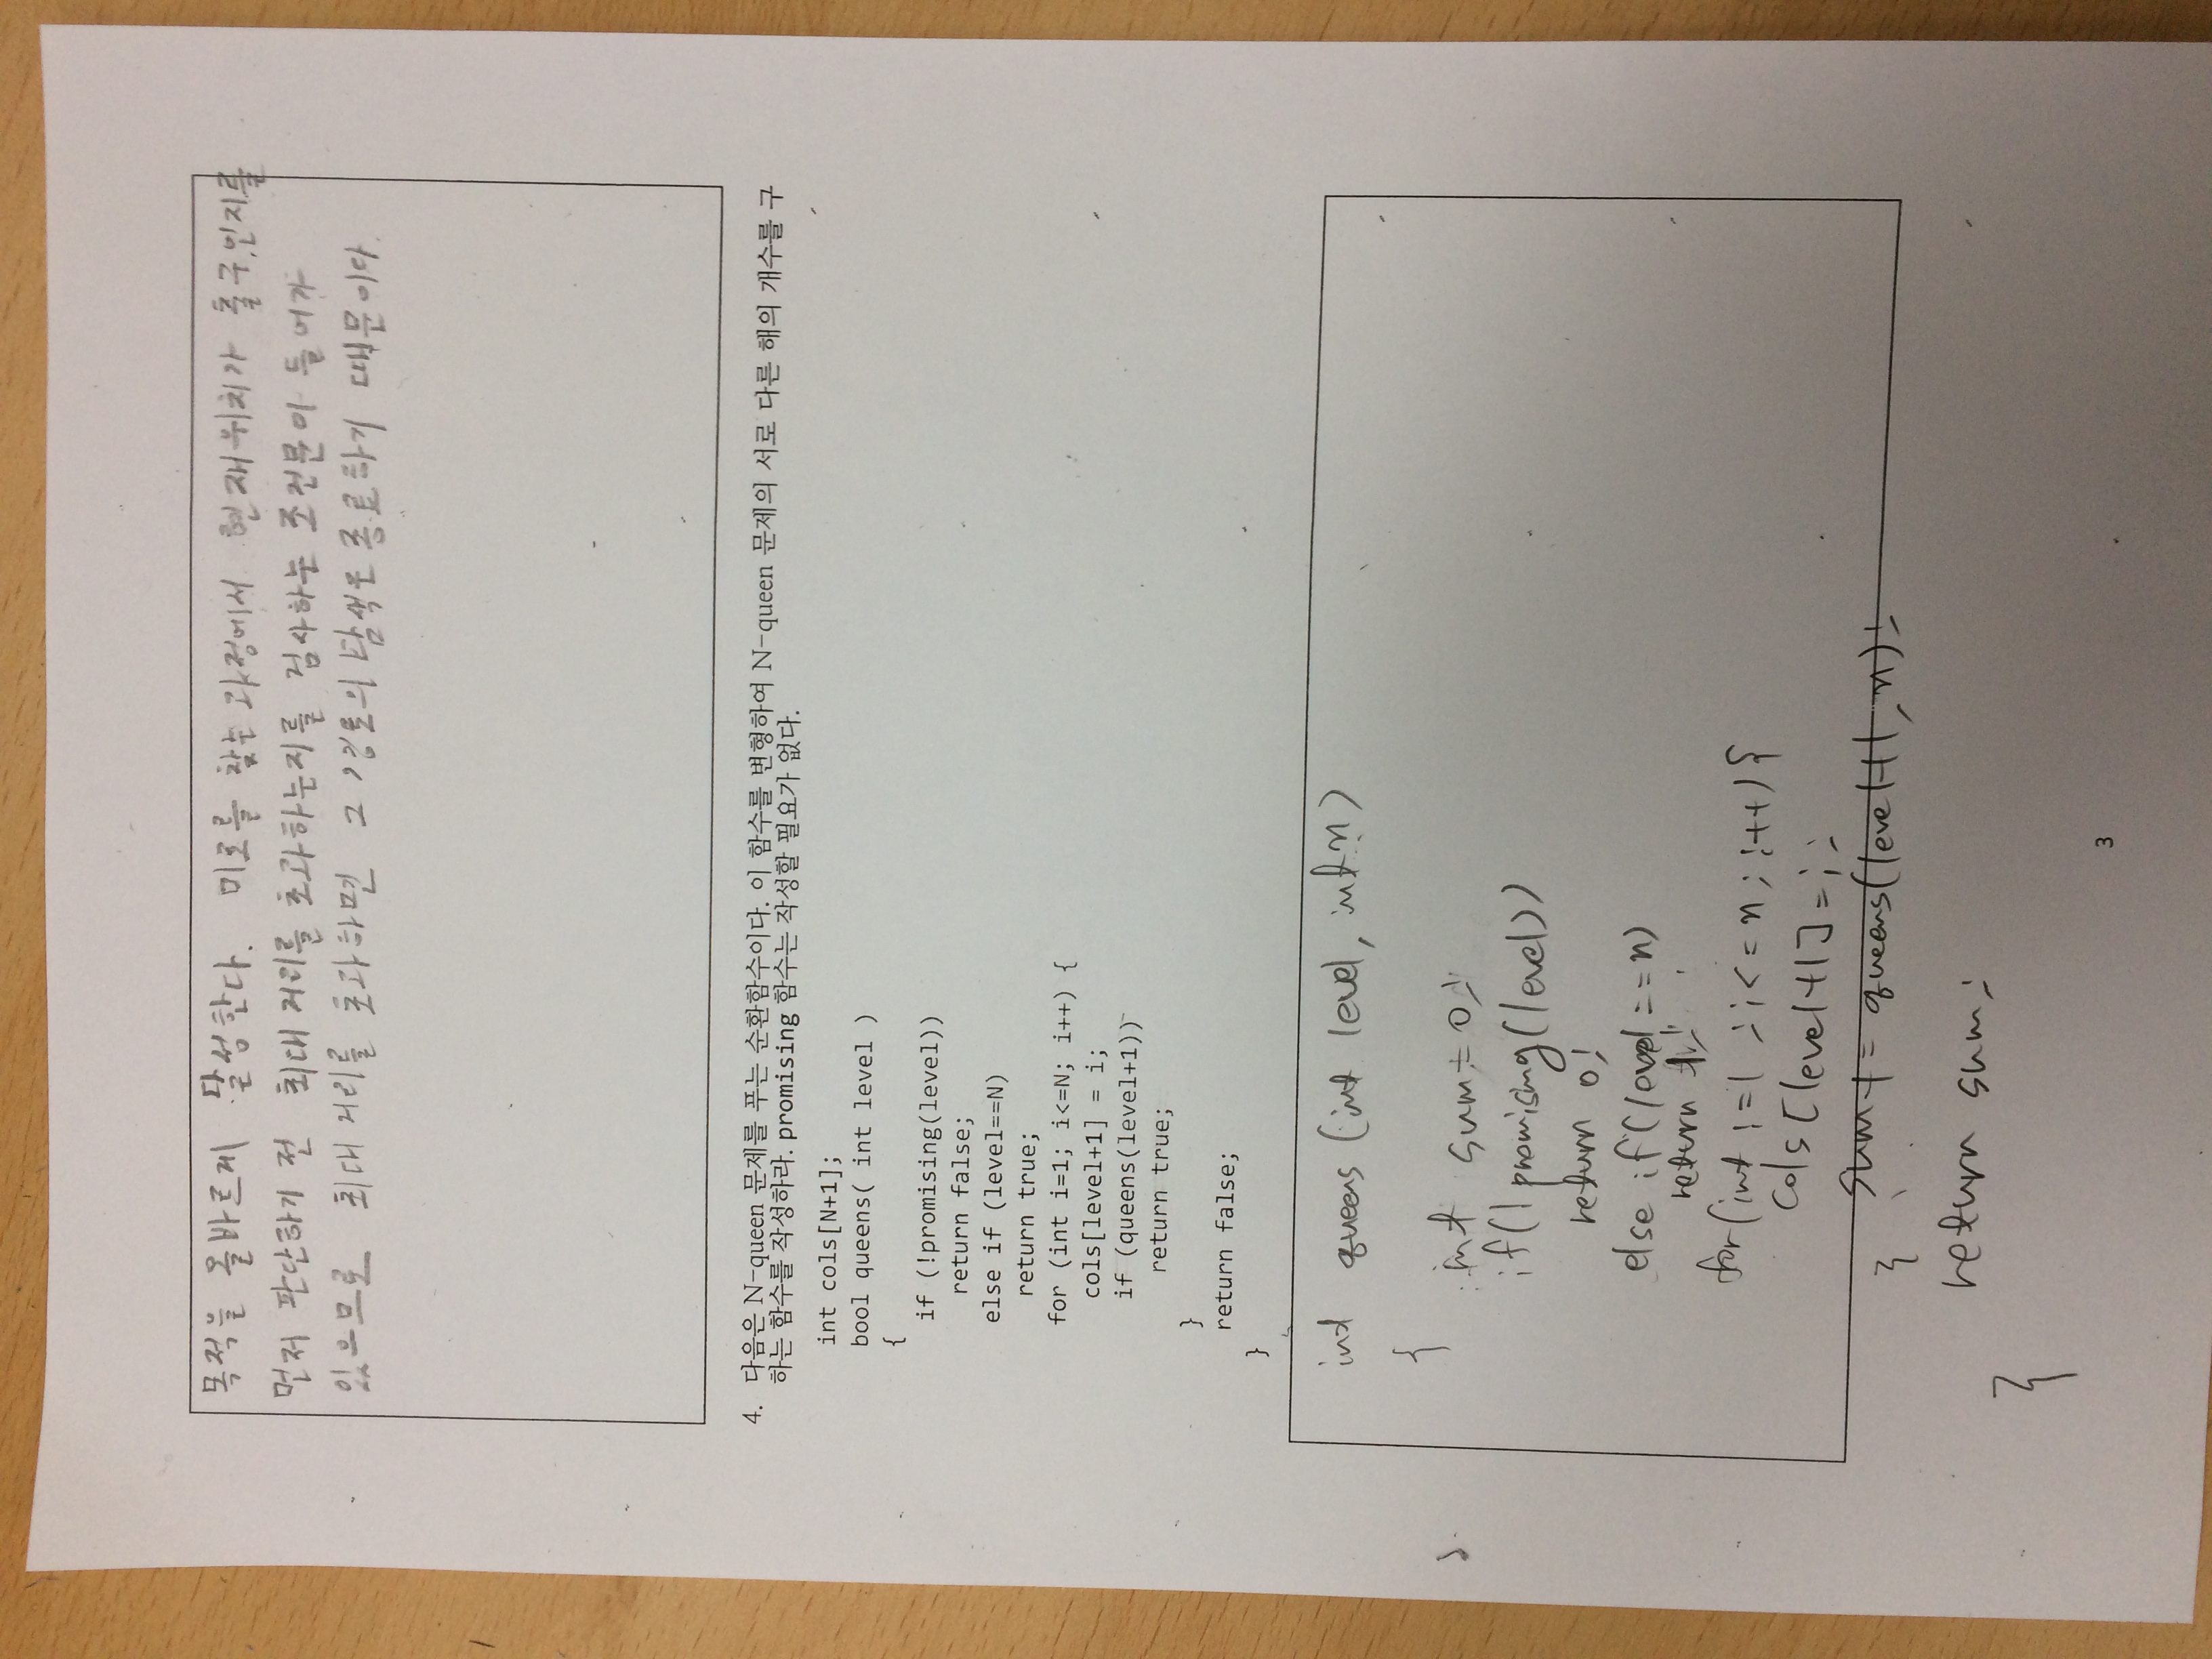 목적을 올바르게 달성한다. 미로를 찾는 과정에서 현재위치가 출구인지를
먼저 판단하기 전 최대 거리를 초과하는지를 검사하는 조건문이 들어가
있으므로 최대 거리를 초과하면 그 경로의 탐색은 종료하기 때문이다.
4. 다음은 N-queen 문제를 푸는 순환함수이다. 이 함수를 변형하여 N-queen 문제의 서로 다른 해의 개수를 구
하는 함수를 작성하라. promising 함수는 작성할 필요가 없다.
int cols[N+1];
bool queens( int level )
{
if (!promising(level))
return false;
else if (level==N)
return true;
for (int i=1; i<=N; i++) {
cols[level+1] = i;
if (queens(level+1))
return true;
}
return false;
}
int queens (int level, int n)
{
int sum = 0;
if(!promising(level))
return 0;
else if(level==n)
return 1;
for(int i=1; i<=n; i++){
cols[level+1]=i;
sum += queens(level+1, n);
}
return sum;
}
3